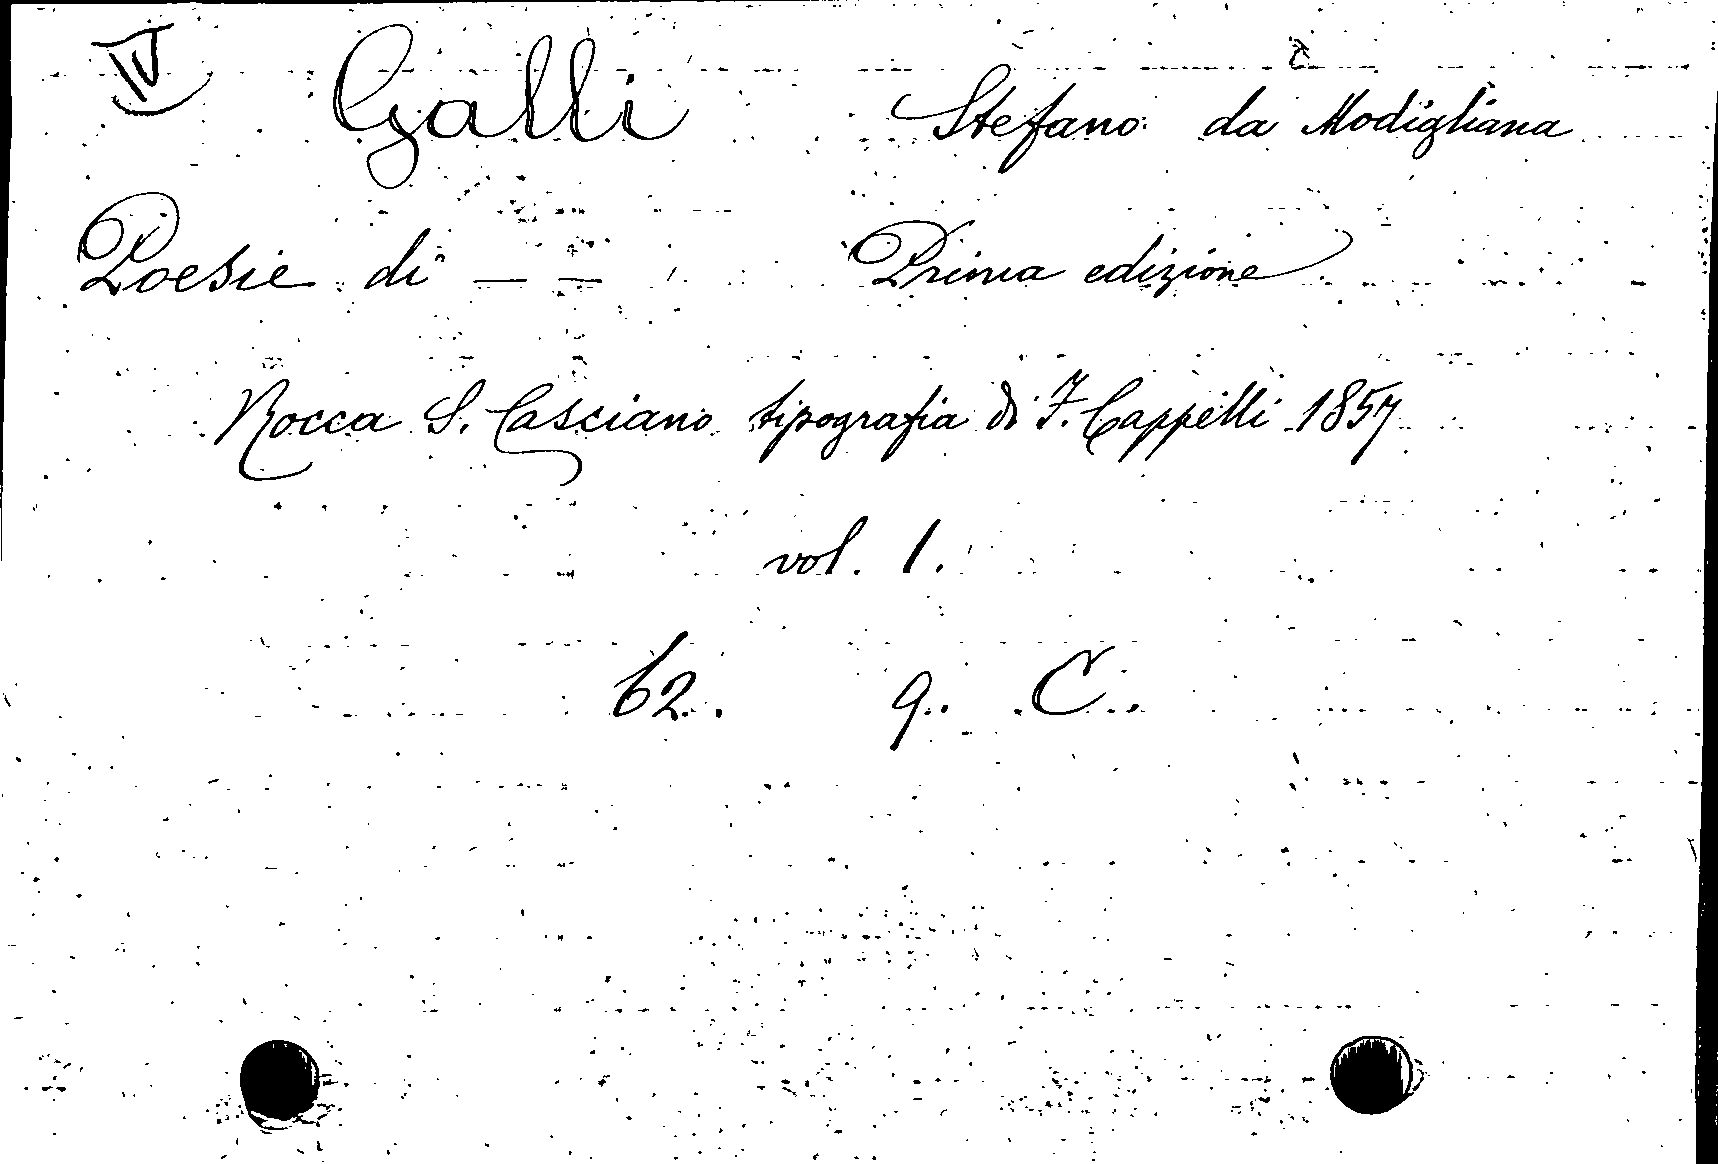 IV Galli Stefano da Modigliana
Poesie di — — Prima edizione
Rocca S. Casciano tipografia di F. Cappelli 1857
vol. 1.
62. 9. C.